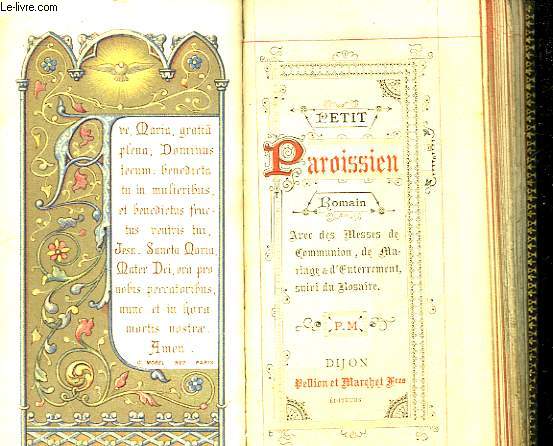 Le-livre.com
Ave, Maria, gratiâ
plena; Dominus
tecum: benedicta
tu in mulieribus,
et benedictus fruc-
tus ventris tui,
Jesu. Sancta Maria,
Mater Dei, ora pro
nobis peccatoribus,
nunc et in hora
mortis nostræ.
Amen.
C. MOREL PARIS
PETIT
Paroissien
Romain
Avec des Messes de
Communion, de Ma-
riage & d'Enterrement,
suivi du Rosaire.
P.M.
DIJON
Pellion et Marchet Fres
ÉDITEURS